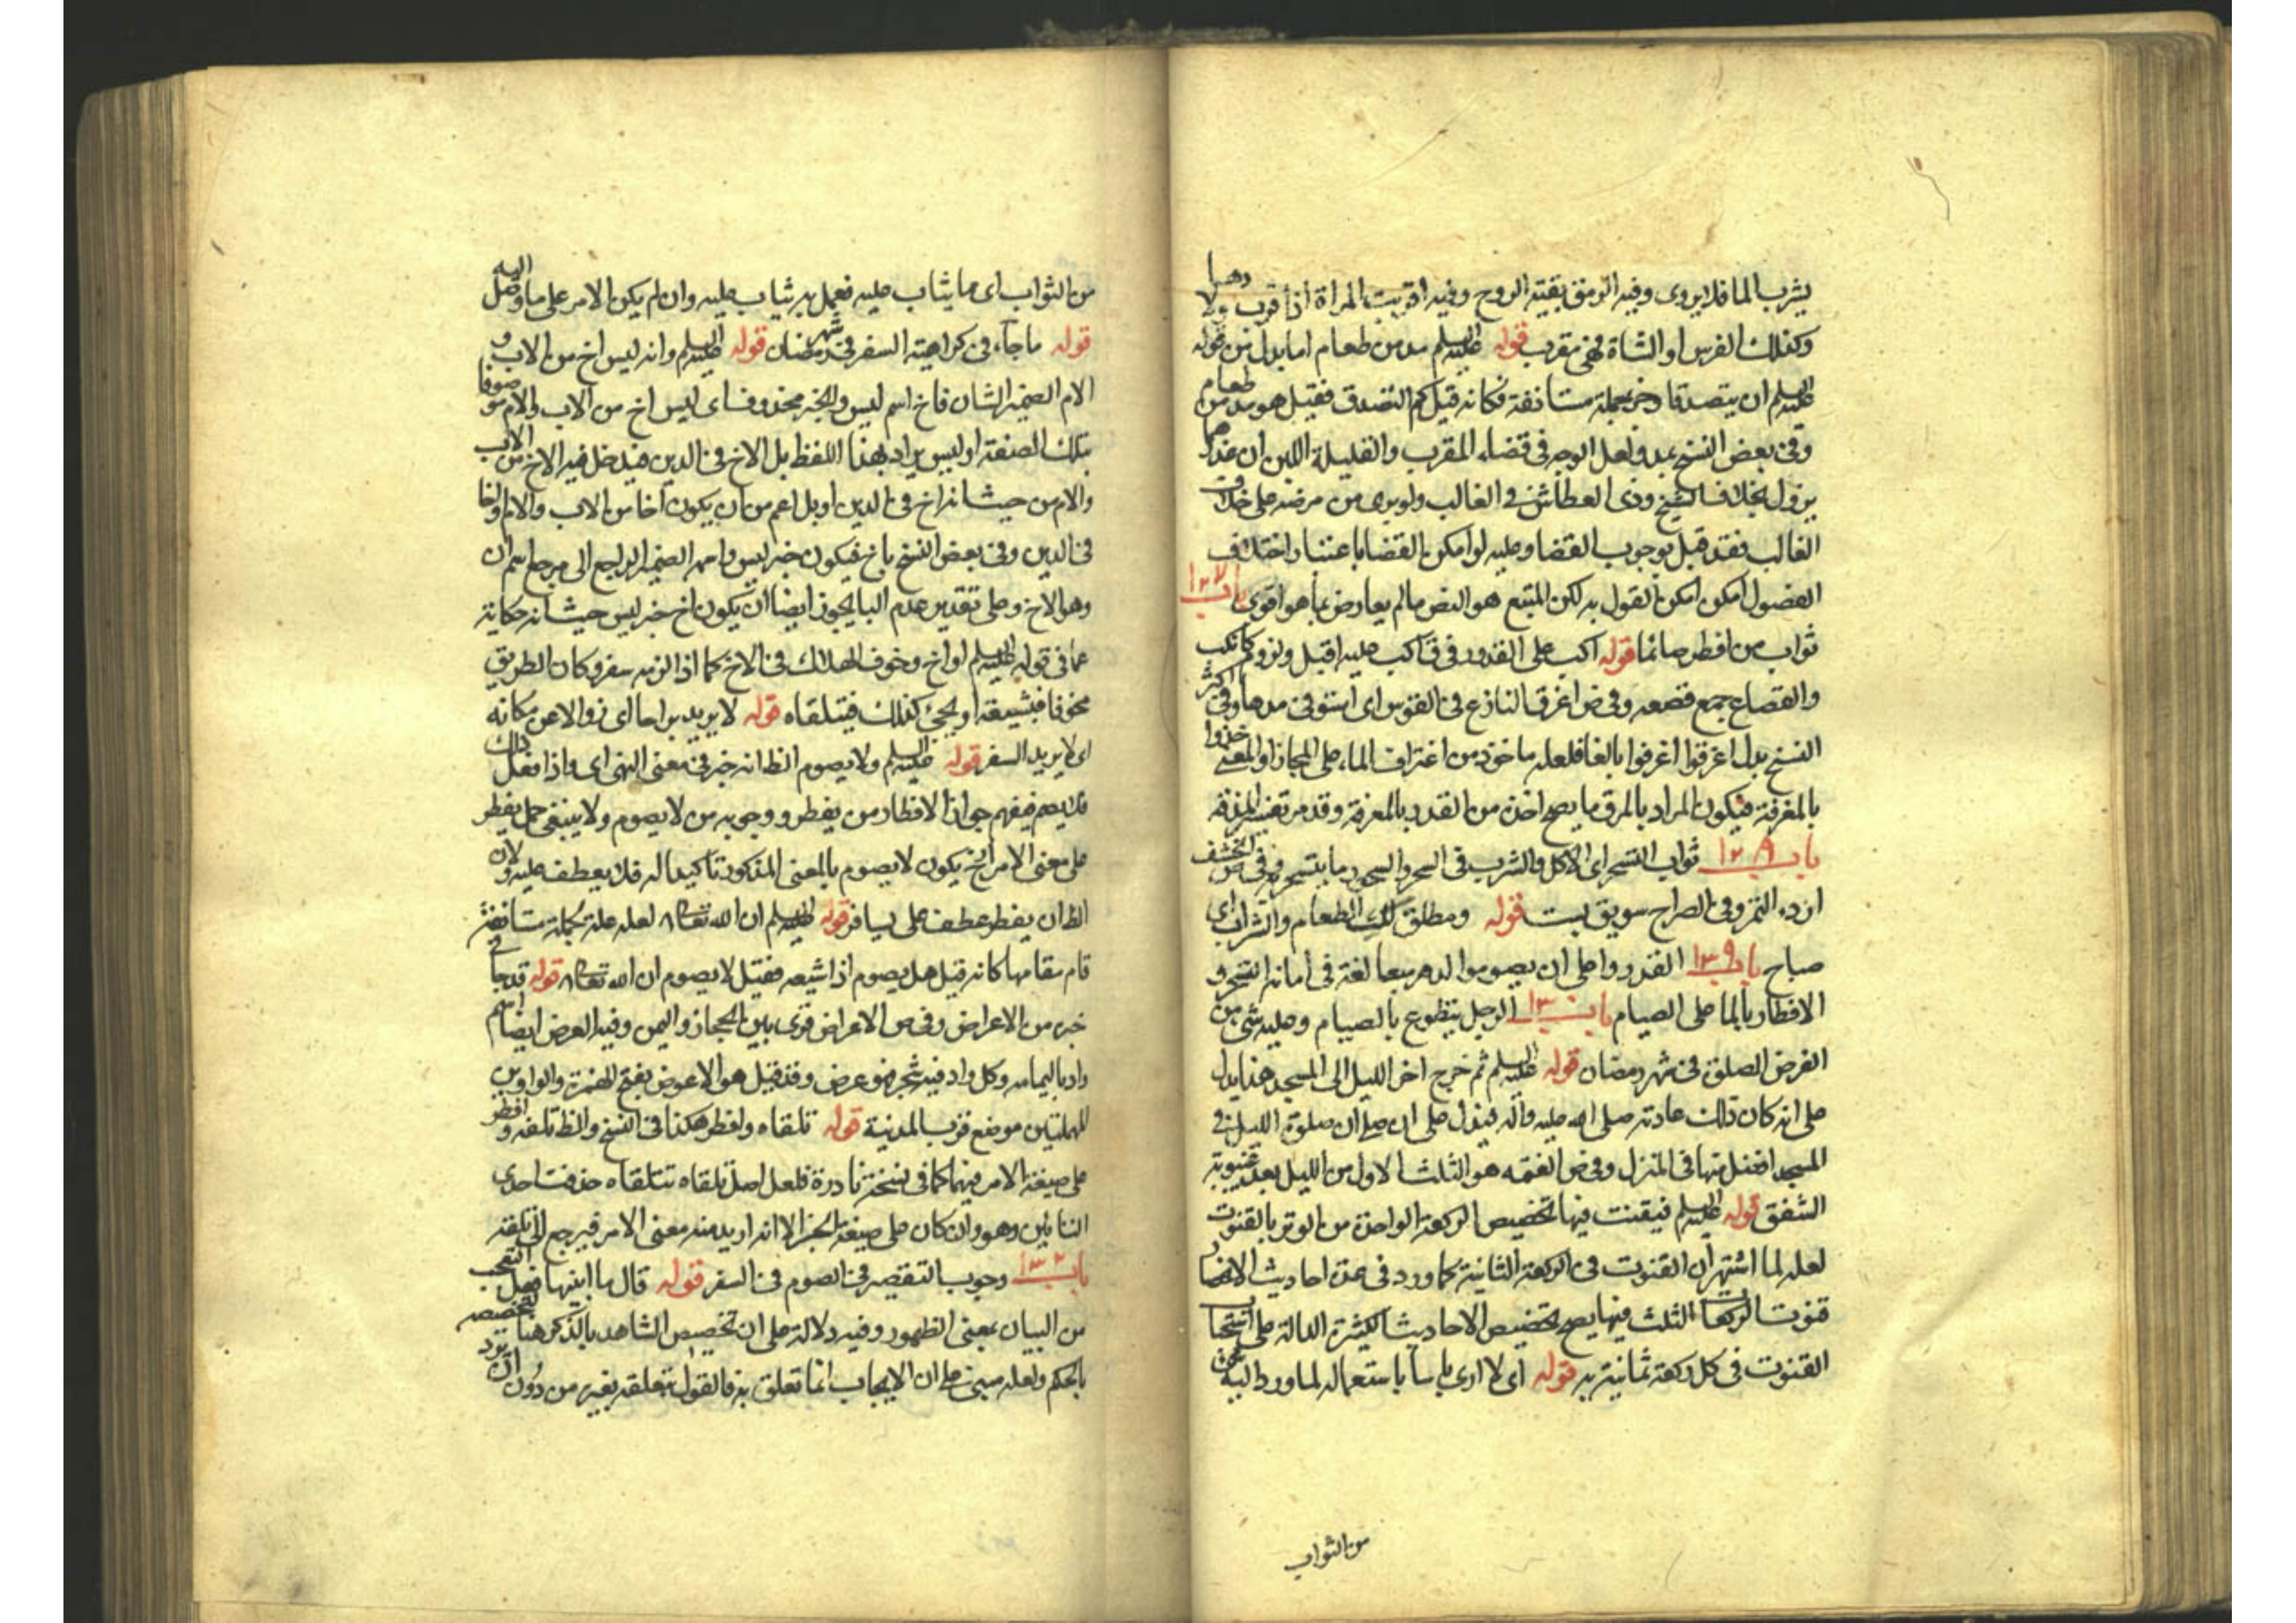 يشرب الما فلا يروى وفيه الرمق بقية الروح وفيه اقربت المراة اذا قرب ولادها
وكذلك الفرس او الشاة فهى مقرب قوله عليه السلم مد من طعام اما بدل من قوله
عليه السلم ان يتصدقا وخبر جملة مستانفة فكانه قيل كم التصدق فقيل هو مد من طعام
وفى بعض النسخ بمد ولعل الوجه فى قضاء المقرب والقليلة اللبن ان عذرهما
يزول بخلاف الشيخ وذى العطاش فى الغالب ولو برى من مرضه على خلاف
الغالب فقد قيل بوجوب القضا وعليه لو امكن القضا باعتبار اختلاف
الفصول امكن امكن القول به لكن المتبع هو النص مالم يعارض بما هو اقوى باب ١٢٧
ثواب من افطر صائما قوله اكب على القدور فى ق اكب عليه اقبل ولزم كانكب
والقصاع جمع قصعه وفى ض اغرق النازع فى القوس اى استوفى مدها وفى اكثر
النسخ بدل اغرقوا اغرفوا بالفا فلعله ماخوذ من اغتراف الماء على المجاز او المعنى خذوا
بالمغرفة فيكون المراد بالمرق ما يصح اخذه من القدر بالمغرفة وقد مر تفسير المذقة
باب ١٢٨ ثواب التسحر اى الاكل والشرب فى السحر والسحور ما يتسحر به وفى ض الحشف
اردء التمر وفى الصراح سويق بست قوله ومطلق لك الطعام والشراب اى
صباح باب ١٢٩ القدر واعلى ان يصوموا لدهر بيعا لغة فى امانه التسحر و
الافطار بالما على الصيام باب ١٣٠ الرجل يتطوع بالصيام وعليه شى من
الفرض الصلوة فى شهر رمضان قوله عليه السلم ثم خرج اخر الليل الى المسجد هذا يدل
على انه كان ذلك عادته صلى الله عليه وآله فيدل على ان صلوة الليل فى
المسجد افضل منها فى المنزل وفى ض العتمه هو الثلث الاول من الليل بعد غيبوبة
الشفق قوله عليه السلم فيقنت فيها تخصيص الركعة الواحدة من الوتر بالقنوت
لعله لما اشتهر ان القنوت فى الركعة الثانية كما ورد فى عدة احاديث
قنوت الركعات الثلث فيها يصح تخصيص الاحاديث الكثيرة الدالة على استحباب
القنوت فى كل ركعة ثمانية به قوله اى لا ارى باسا باستعماله لما ورد اليه من
من الثواب
من الثواب اى ما يثاب عليه فعمل به يثاب عليه وان لم يكن الامر على ما وصل اليه
قوله ما جاء فى كراهية السفر فى شهر رمضان قوله عليه السلم وانه ليس اخ من الاب و
الام الضمير للشان فاخ اسم ليس والخبر محذوف اى ليس اخ من الاب والام موصوفا
بتلك الصفة او ليس يراد بهذا اللفظ بل الاخ فى الدين فيدخل فيه الاخ من الاب
والام من حيث انه اخ فى الدين او بل اعم من ان يكون اخا من الاب والام او اخا
فى الدين وفى بعض النسخ باخ فيكون خبر ليس واسمه الضمير الراجع الى مرجع اسم ان
وهو الاخ وعلى تقدير عدم البا يجوز ايضا ان يكون اخ خبر ليس حيث انه حكاية
عما فى قوله عليه السلم او اخ وخوف الهلاك فى الاخ كما اذا لزمه سفر وكان الطريق
مخوفا فيشيعه او يجئ كذلك فيتلقاه قوله لا يريد براحا اى زوالا عن مكانه
اى لا يريد السفر قوله عليه السلم ولا يصوم الظ انه خبر فى معنى النهى اى واذا فعل ذلك
فلا يصم فيفهم جواز الافطار من يفطر ووجوبه من لا يصوم ولا ينبغى حمل يفطر
على معنى الامر اذ يكون لا يصوم بالمعنى المذكور تاكيدا له فلا يعطف عليه ولان
الظ ان يفطر عطف على يسافر قوله عليه السلم ان الله تعالى لعله علة بجملة مستانفة
قام مقامها كانه قيل هل يصوم اذا شيعه فقيل لا يصوم ان الله تعالى قوله قد جا
خبره من الاعراض وفى ض الاعراض قرى بين الحجاز واليمن وفيه العرض ايضا اسم
واد باليمامه وكل واد فيه شجر فهو عرض وقد قيل هو الاعوص بفتح الهمزة والواو بين
المهملتين موضع قرب المدينة قوله تلقاه وافطر هكذا فى النسخ والظ تلقه وافطر
على صيغة الامر فيهما كما فى نسخة نادرة فلعل اصل تلقاه تتلقاه حذفت احدى
التائين وهو وان كان على صيغة الخبر الا انه اريد منه معنى الامر فيرجع الى تلقه
باب ١٣٢ وجوب التقصير فى الصوم فى السفر قوله قال ما ابينها فعل التعجب
من البيان بمعنى الظهور وفيه دلالة على ان تخصيص الشاهد بالذكر هنا لتخصيصه
بالحكم ولعله مبنى على ان الايجاب انما تعلق به فالقول بتعلقه بغيره من دون ان يرد